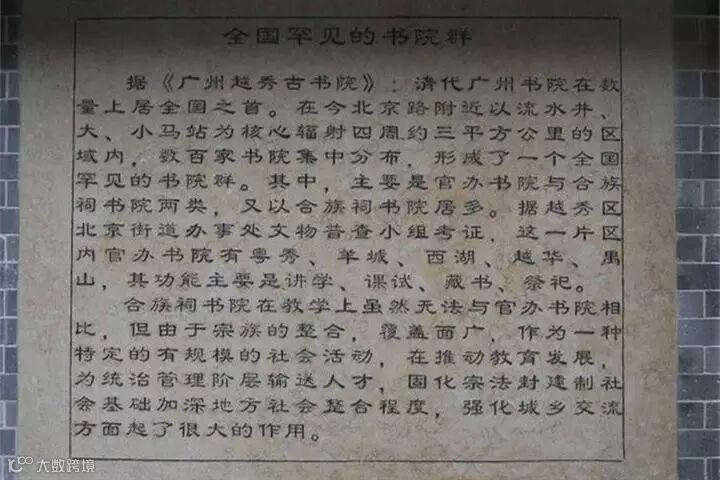 全国罕见的书院群
据《广州越秀古书院》：清代广州书院在数
量上居全国之首。在今北京路附近以流水井、
大、小马站为核心辐射四周约三平方公里的区
域内，数百家书院集中分布，形成了一个全国
罕见的书院群。其中，主要是官办书院与合族
祠书院两类，又以合族祠书院居多。据越秀区
北京街道办事处文物普查小组考证，这一片区
内官办书院有粤秀、羊城、西湖、越华、禺
山，其功能主要是讲学、课试、藏书、祭祀。
合族祠书院在教学上虽然无法与官办书院相
比，但由于宗族的整合，覆盖面广，作为一种
特定的有规模的社会活动，在推动教育发展，
为统治管理阶层输送人才，固化宗法封建制社
会基础加深地方社会整合程度，强化城乡交流
方面起了很大的作用。
大数跨境